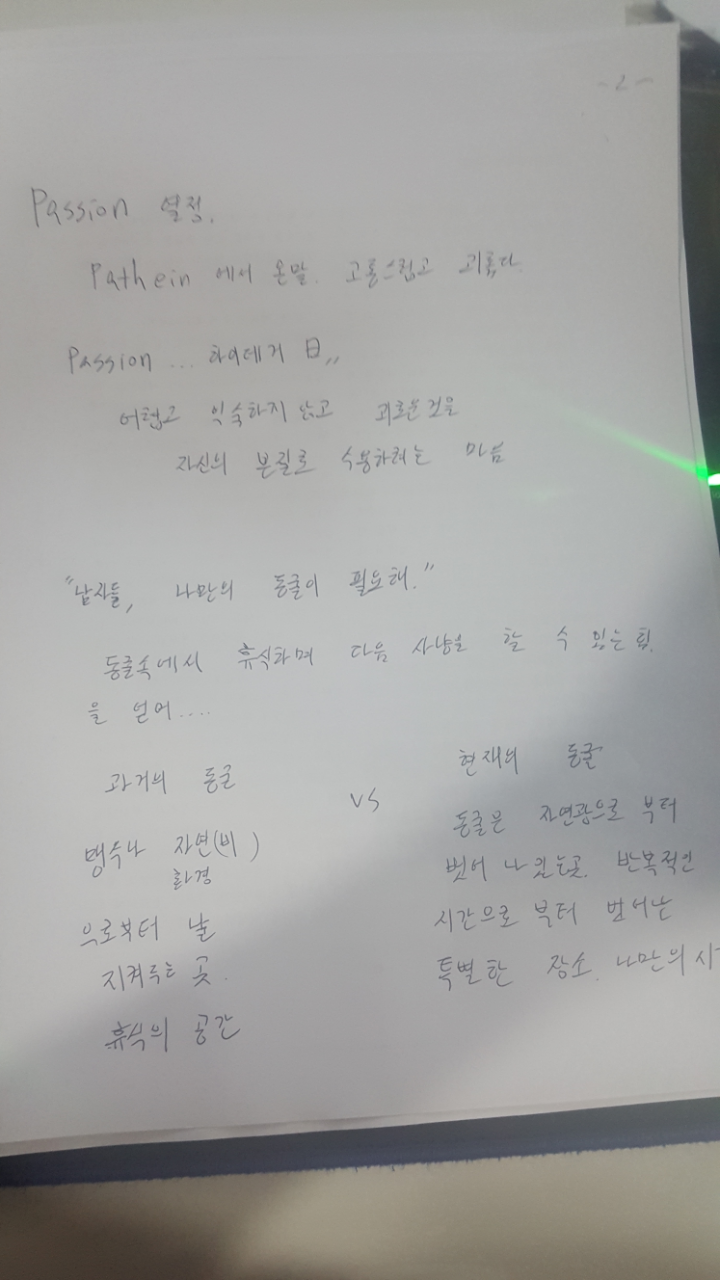 -2-
Passion 열정.
Pathein 에서 온말. 고통스럽고 괴롭다.
Passion ... 하이데거 曰,,
어렵고 익숙하지 않고 괴로운것을
자신의 본질로 수용하려는 마음
"남자들, 나만의 동굴이 필요해."
동굴속에서 휴식하며 다음 사냥을 할 수 있는 힘.
을 얻어....
과거의 동굴
vs
현재의 동굴
맹수나 자연(비)
환경
으로부터 날
지켜주는 곳.
휴식의 공간
동굴은 자연광으로 부터
벗어 나 있는곳. 반복적인
시간으로 부터 벗어난
특별한 장소. 나만의